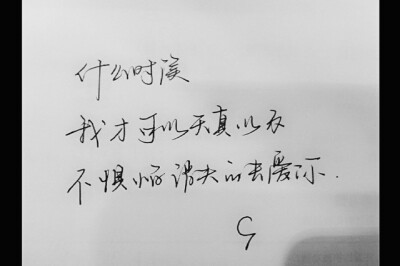 什么时候
我才可以天真以及
不惧怕消失的去爱你.
G